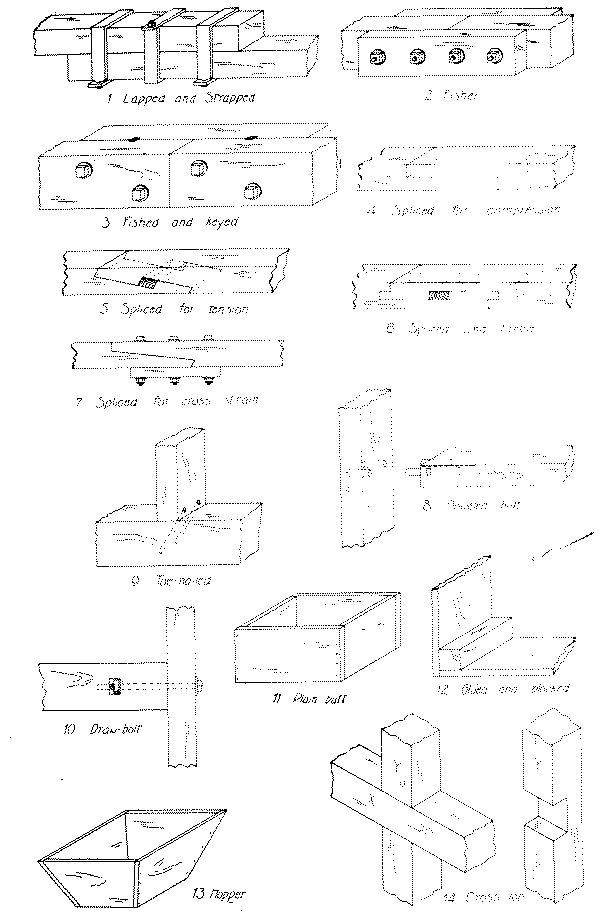 1 Lapped and Strapped
2 Fisher
3 Fished and keyed
4 Spliced for compression
5 Spliced for tension
6 Spliced and
7 Spliced for cross strain
8 butt
9 Toe-nailed
10 Draw-bolt
11 Plain butt
12 Glued and blocked
Y
X
Y
13 Hopper
14 Cross lap